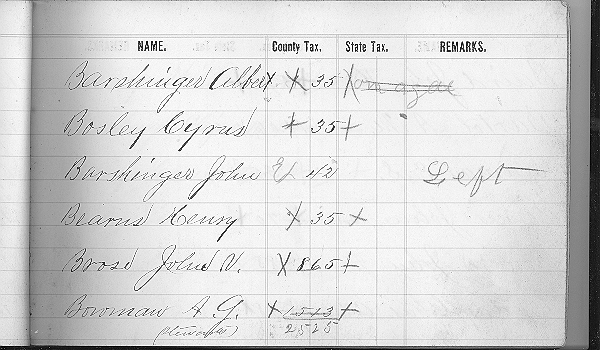 NAME. County Tax. State Tax. REMARKS.
Barshinger Albert X 35 X
Bosley Cyrus X 35 X
Barshinger John 42 Left
Bearns Henry X 35 X
Brose John V. X 865 X
Bowman A. G. X 1513 X
2525